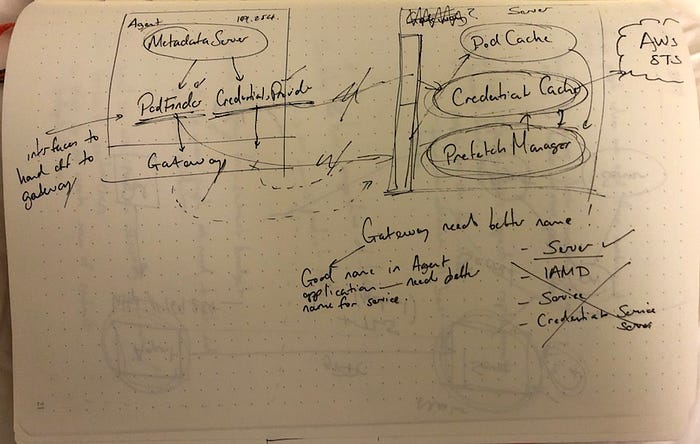 Agent
169.254.
Metadata Server
PodFinder
Credentials Provider
Gateway
interfaces to
hand off to
gateway
?
Server
Pod Cache
Credential Cache
Prefetch Manager
AWS
STS
Gateway needs better name!
Good name in Agent
application — need better
name for service.
- Server ✓
- IAMD
- Service
- Credentials Service
Server